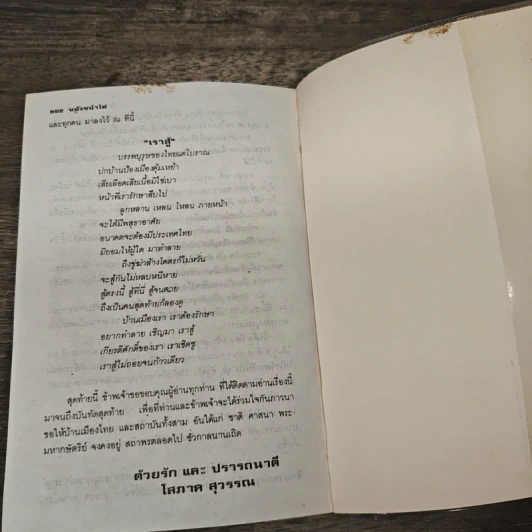 ๑๑๒ หนังหน้าไฟ
และทุกคน มาลงไว้ ณ ที่นี้
"เราสู้"
บรรพบุรุษของไทยแต่โบราณ
ปกบ้านป้องเมืองคุ้มเหย้า
เสียเลือดเสียเนื้อมิใช่เบา
หน้าที่เรารักษาสืบไป
ลูกหลาน เหลน โหลน ภายหน้า
จะได้มีพสุธาอาศัย
อนาคตจะต้องมีประเทศไทย
มิยอมให้ผู้ใด มาทำลาย
ถึงขู่ฆ่าล้างโคตรก็ไม่หวั่น
จะสู้กันไม่หลบหนีหาย
สู้ตรงนี้ สู้ที่นี่ สู้จนตาย
ถึงเป็นคนสุดท้ายก็ลองดู
บ้านเมืองเรา เราต้องรักษา
อยากทำลาย เชิญมา เราสู้
เกียรติศักดิ์ของเรา เราเชิดชู
เราสู้ไม่ถอยจนก้าวเดียว
สุดท้ายนี้ ข้าพเจ้าขอขอบคุณผู้อ่านทุกท่าน ที่ได้ติดตามอ่านเรื่องนี้
มาจนถึงบันทัดสุดท้าย เพื่อที่ท่านและข้าพเจ้าจะได้ร่วมใจกันภาวนา
ขอให้บ้านเมืองไทย และสถาบันทั้งสาม อันได้แก่ ชาติ ศาสนา พระ-
มหากษัตริย์ จงคงอยู่ สถาพรตลอดไป ชั่วกาลนานเถิด
ด้วยรัก และ ปรารถนาดี
โสภาค สุวรรณ